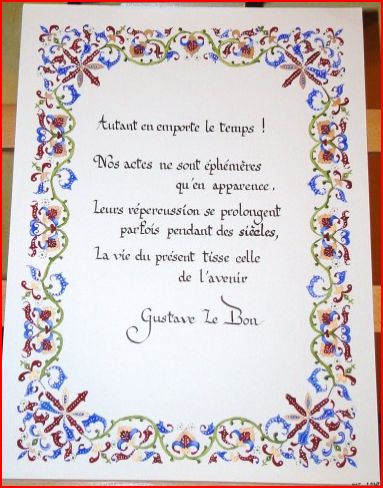 Autant en emporte le temps !
Nos actes ne sont éphémères
qu'en apparence.
Leurs répercussion se prolongent
parfois pendant des siècles,
La vie du présent tisse celle
de l'avenir
Gustave Le Bon